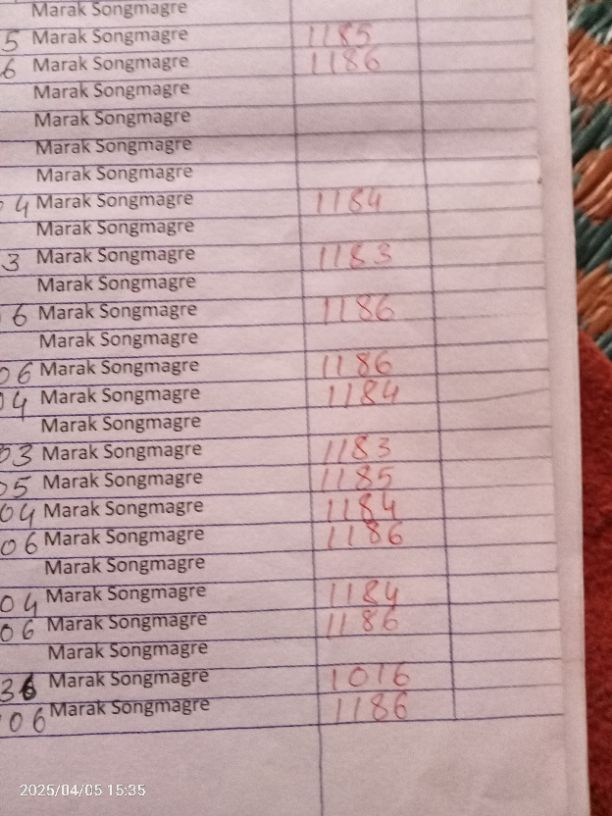 Marak Songmagre
5 Marak Songmagre 1185
6 Marak Songmagre 1186
Marak Songmagre
Marak Songmagre
Marak Songmagre
Marak Songmagre
04 Marak Songmagre 1184
Marak Songmagre
3 Marak Songmagre 1183
Marak Songmagre
6 Marak Songmagre 1186
Marak Songmagre
06 Marak Songmagre 1186
04 Marak Songmagre 1184
Marak Songmagre
03 Marak Songmagre 1183
05 Marak Songmagre 1185
04 Marak Songmagre 1184
06 Marak Songmagre 1186
Marak Songmagre
04 Marak Songmagre 1184
06 Marak Songmagre 1186
Marak Songmagre
36 Marak Songmagre 1016
106 Marak Songmagre 1186
2025/04/05 15:35